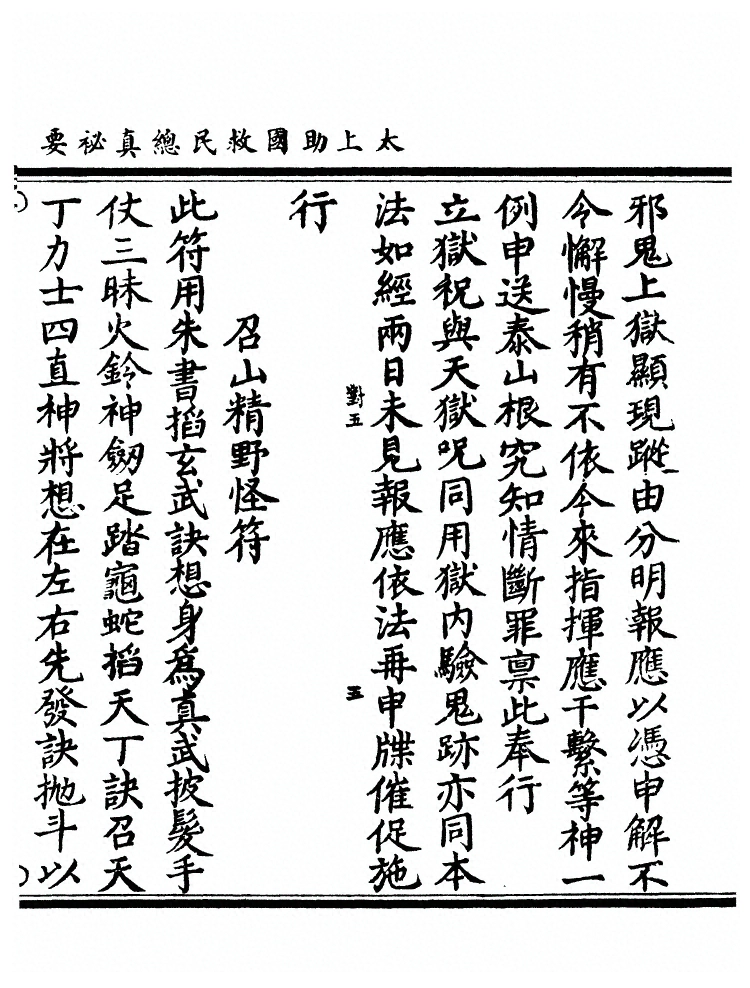 太上助國救民總真祕要
邪鬼上獄顯現蹤由分明報應以憑申解不
令懈慢稍有不依今來指揮應干繫等神一
例申送泰山根究知情斷罪禀此奉行
立獄祝與天獄呪同用獄內驗鬼跡亦同本
法如經兩日未見報應依法再申牒催促施
對五
五
行
召山精野怪符
此符用朱書掐玄武訣想身為真武披髮手
仗三昧火鈴神劒足踏龜蛇掐天丁訣召天
丁力士四直神將想在左右先發訣拋斗以